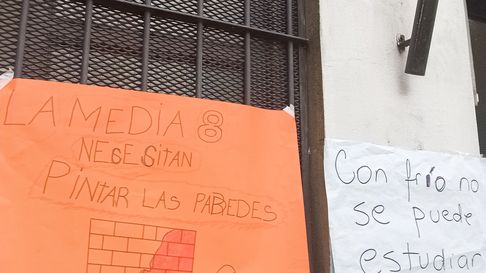 LA MEDIA 8
NESESITAN
PINTAR LAS PAREDES
Con frío no
se puede
estudiar